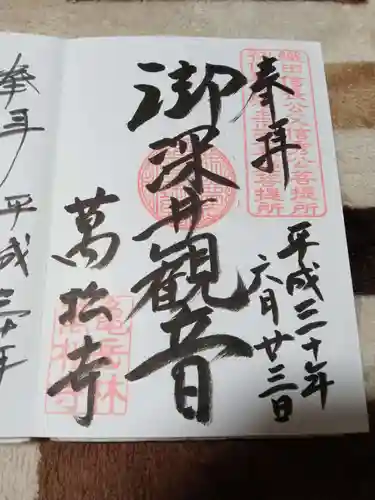 奉拝
平成三十年
六月廿三日
織田信長公父信秀公菩提所
御深井観音
萬松寺
亀岳林
萬松寺
奉拝
平成三十年